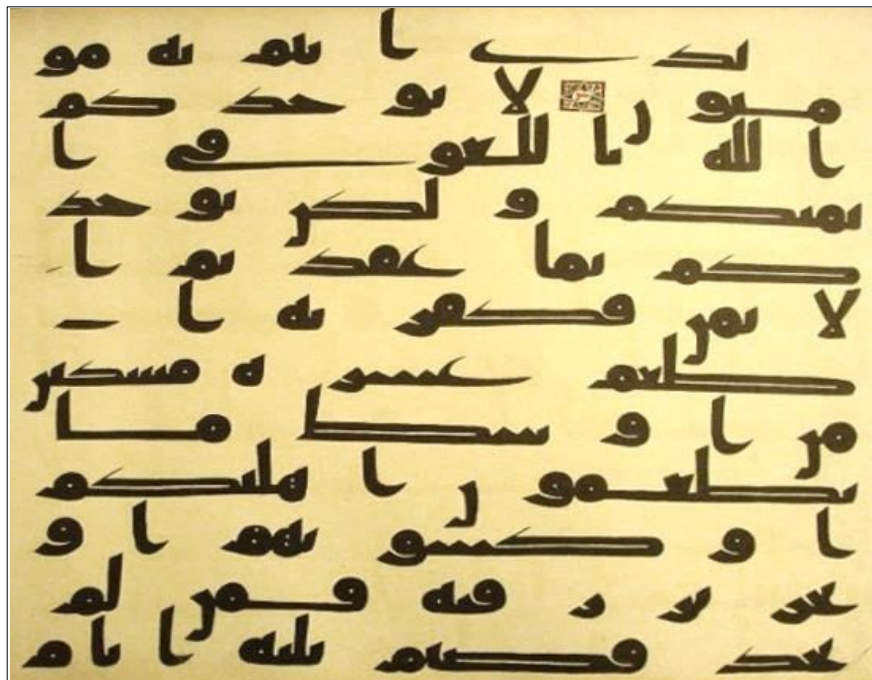 لذى انتم به مو
منون لا يوخذكم
الله باللغو فى ا
يمنكم ولكن يوخذ
كم بما عقدتم ا
لايمن فكفرته ا
طعم عشره مسكين
من اوسط ما
تطعمون اهليكم
او كسوتهم او
تحرير رقبه فمن لم
يجد فصيم ثلثه ايام